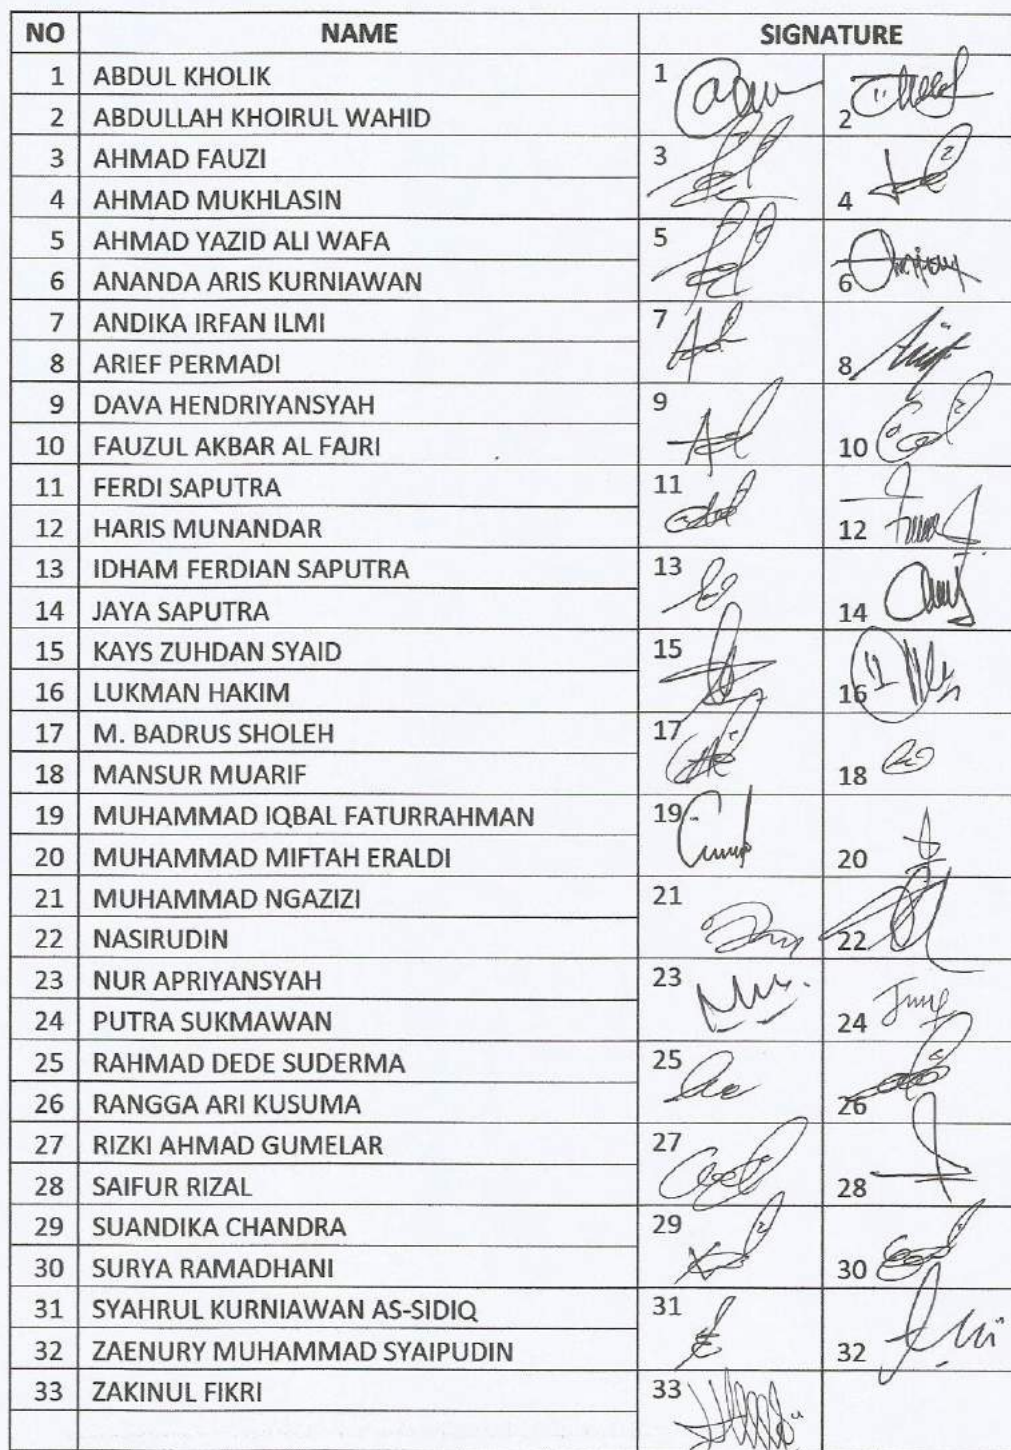 NO NAME SIGNATURE
1 ABDUL KHOLIK 1
2 ABDULLAH KHOIRUL WAHID 2
3 AHMAD FAUZI 3
4 AHMAD MUKHLASIN 4
5 AHMAD YAZID ALI WAFA 5
6 ANANDA ARIS KURNIAWAN 6
7 ANDIKA IRFAN ILMI 7
8 ARIEF PERMADI 8
9 DAVA HENDRIYANSYAH 9
10 FAUZUL AKBAR AL FAJRI 10
11 FERDI SAPUTRA 11
12 HARIS MUNANDAR 12
13 IDHAM FERDIAN SAPUTRA 13
14 JAYA SAPUTRA 14
15 KAYS ZUHDAN SYAID 15
16 LUKMAN HAKIM 16
17 M. BADRUS SHOLEH 17
18 MANSUR MUARIF 18
19 MUHAMMAD IQBAL FATURRAHMAN 19
20 MUHAMMAD MIFTAH ERALDI 20
21 MUHAMMAD NGAZIZI 21
22 NASIRUDIN 22
23 NUR APRIYANSYAH 23
24 PUTRA SUKMAWAN 24
25 RAHMAD DEDE SUDERMA 25
26 RANGGA ARI KUSUMA 26
27 RIZKI AHMAD GUMELAR 27
28 SAIFUR RIZAL 28
29 SUANDIKA CHANDRA 29
30 SURYA RAMADHANI 30
31 SYAHRUL KURNIAWAN AS-SIDIQ 31
32 ZAENURY MUHAMMAD SYAIPUDIN 32
33 ZAKINUL FIKRI 33